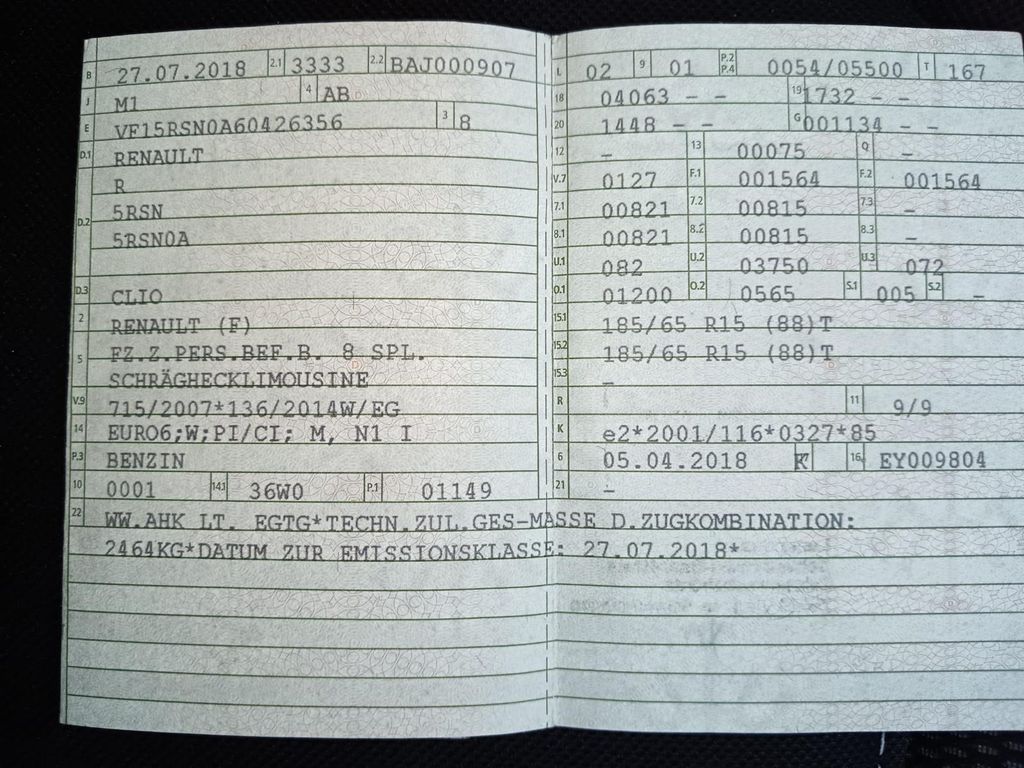 B 27.07.2018 2.1 3333 2.2 BAJ000907
J M1 4 AB
E VF15RSN0A60426356 3 8
D.1 RENAULT
R
D.2 5RSN
5RSN0A
D.3 CLIO
2 RENAULT (F)
5 FZ.Z.PERS.BEF.B. 8 SPL.
SCHRÄGHECKLIMOUSINE
V.9 715/2007*136/2014W/EG
14 EURO6;W;PI/CI; M, N1 I
P.3 BENZIN
10 0001 14.1 36W0 P.1 01149
L 02 9 01 P.2 P.4 0054/05500 T 167
18 04063 - - 19 1732 - -
20 1448 - - G 001134 - -
12 - 13 00075 Q -
V.7 0127 F.1 001564 F.2 001564
7.1 00821 7.2 00815 7.3 -
8.1 00821 8.2 00815 8.3 -
U.1 082 U.2 03750 U.3 072
O.1 01200 O.2 0565 S.1 005 S.2 -
15.1 185/65 R15 (88)T
15.2 185/65 R15 (88)T
15.3 -
R 11 9/9
K e2*2001/116*0327*85
6 05.04.2018 17 K 16 EY009804
21 -
22 WW.AHK LT. EGTG*TECHN.ZUL.GES-MASSE D.ZUGKOMBINATION:
2464KG*DATUM ZUR EMISSIONSKLASSE: 27.07.2018*